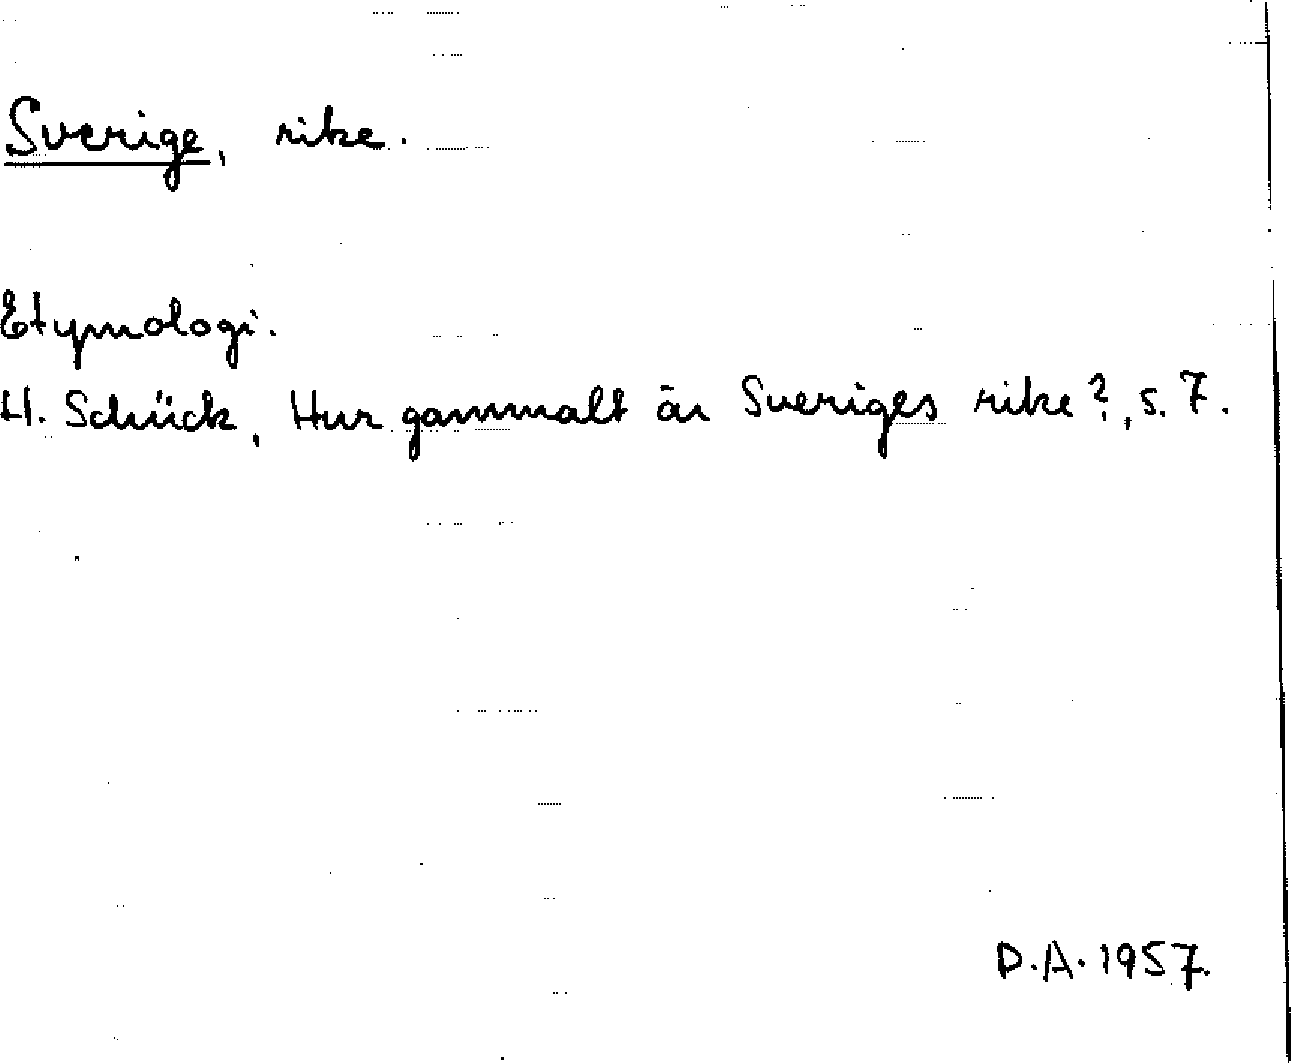 Sverige, rike.
Etymologi.
H. Schück, Hur gammalt är Sveriges rike?, s. 7.
D.A. 1957.